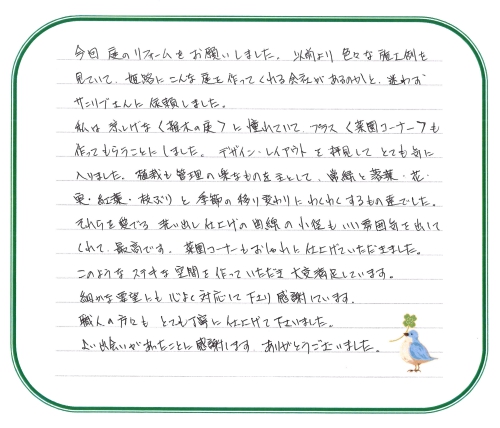 今回 庭のリフォームをお願いしました。以前より 色々な施工例を
見ていて、姫路にこんな庭を作ってくれる会社があるのかと、迷わず
サンリブさんに依頼しました。
私は 涼しげな〈雑木の庭〉に憧れていて、プラス〈菜園コーナー〉も
作ってもらうことにしました。デザイン・レイアウトを拝見して とても気に
入りました。植栽も管理の楽なものを主として、常緑と落葉・花・
実・紅葉・枝ぶり と 季節の移り変わりに わくわくするもの達でした。
それらを奏でる 洗い出し仕上げの曲線の小径も いい雰囲気を出して
くれて、最高です。菜園コーナーもおしゃれに仕上げていただきました。
このような ステキな空間を作っていただき 大変満足しています。
細かな要望にも 心よく対応して下さり 感謝しています。
職人の方々も とても丁寧に仕上げて下さいました。
よい出会いがあったことに感謝します。ありがとうございました。